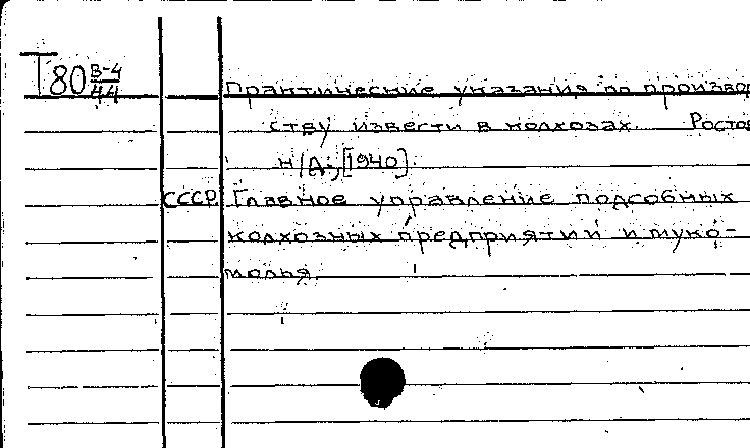 Т80 В-4/44
Практические указания по производ
ству извести в колхозах. Ростов
н/Д., [1940].
СССР Главное управление подсобных
колхозных предприятий и муко-
молья.